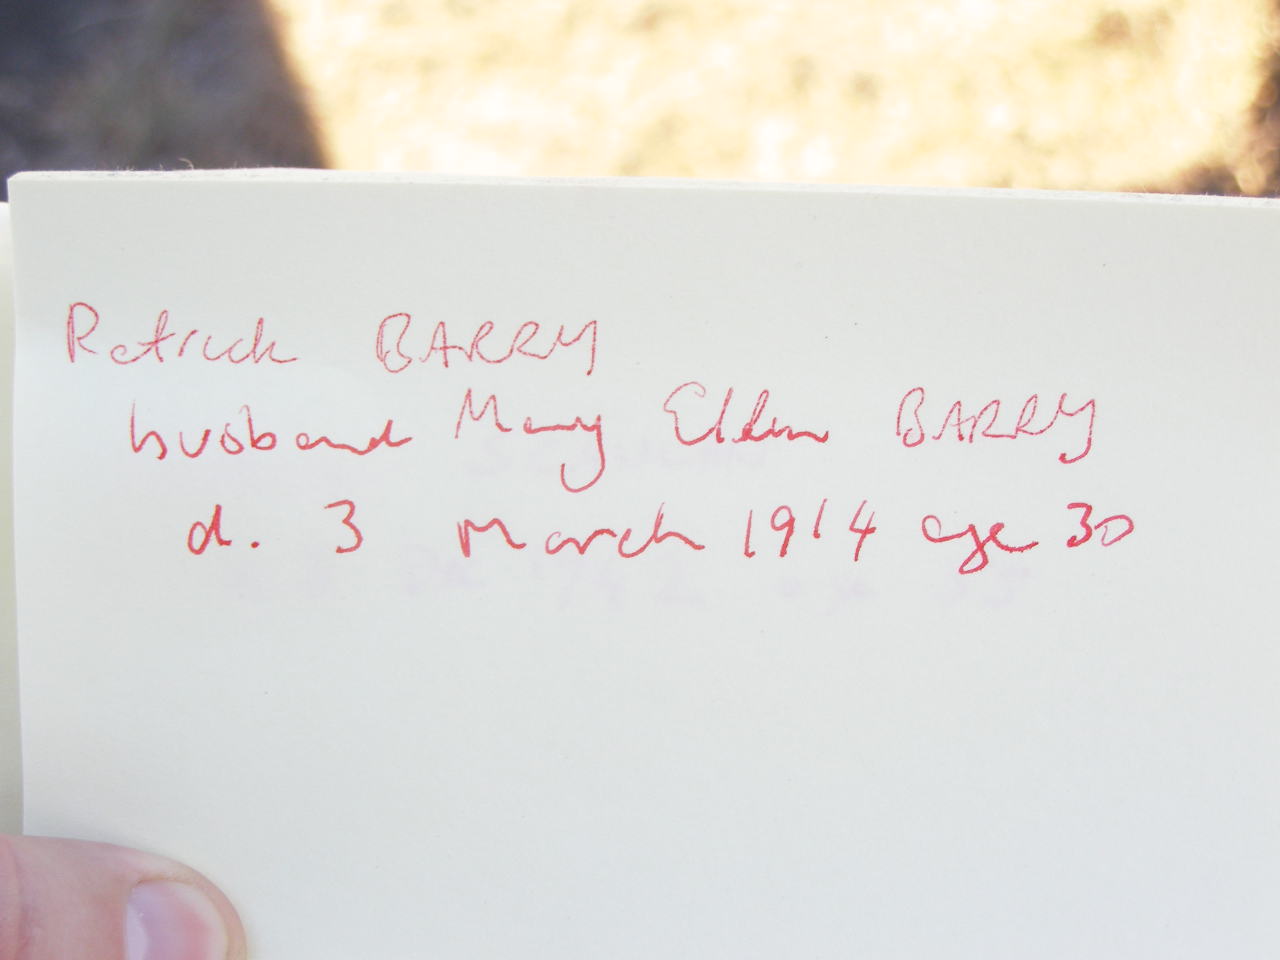 Patrick BARRY
husband Mary Ellen BARRY
d. 3 March 1914 age 30